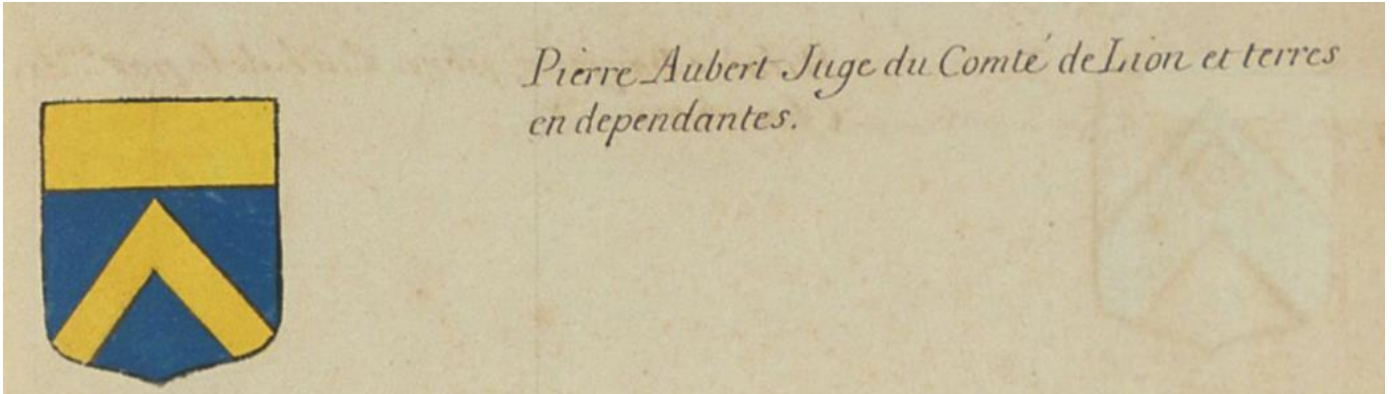 Pierre Aubert Juge du Comté de Lion et terres
en dependantes.